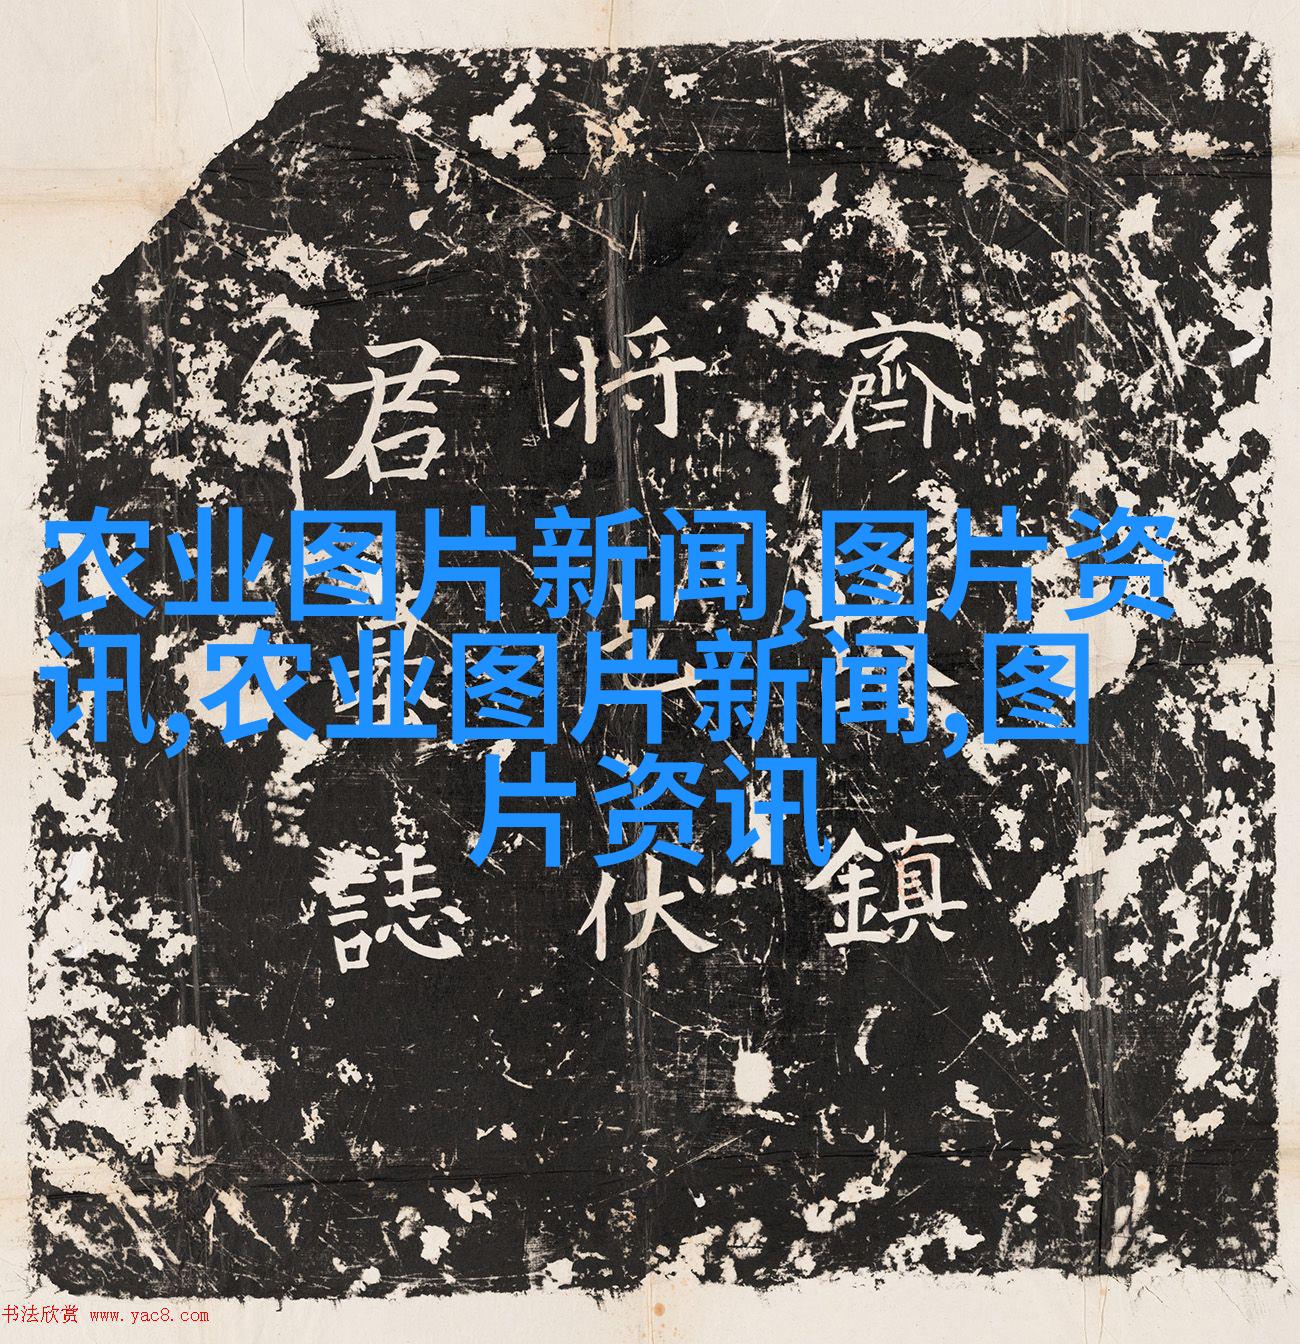 齊鎮
将伏
君誌
农业图片新闻,图片资
讯,农业图片新闻,图
片资讯
书法欣赏 www.yac8.com